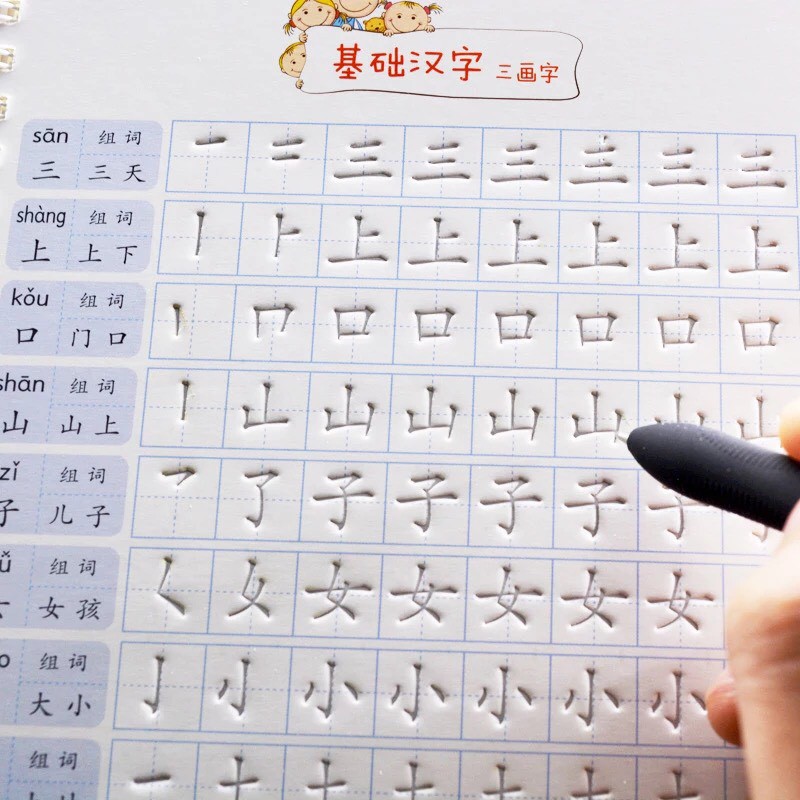 基础汉字 三画字
sān 组词
三 三天
一 二 三 三 三 三 三 三
shàng 组词
上 上下
丨 ⺊ 上 上 上 上 上 上
kǒu 组词
口 门口
丨 冂 口 口 口 口 口 口
shān 组词
山 山上
丨 山 山 山 山 山
zǐ 组词
子 儿子
乛 了 子 子 子 子 子
ǚ 组词
女孩
女 女 女 女 女
o 组词
大小
亅 小 小 小 小 小
组词
一 十